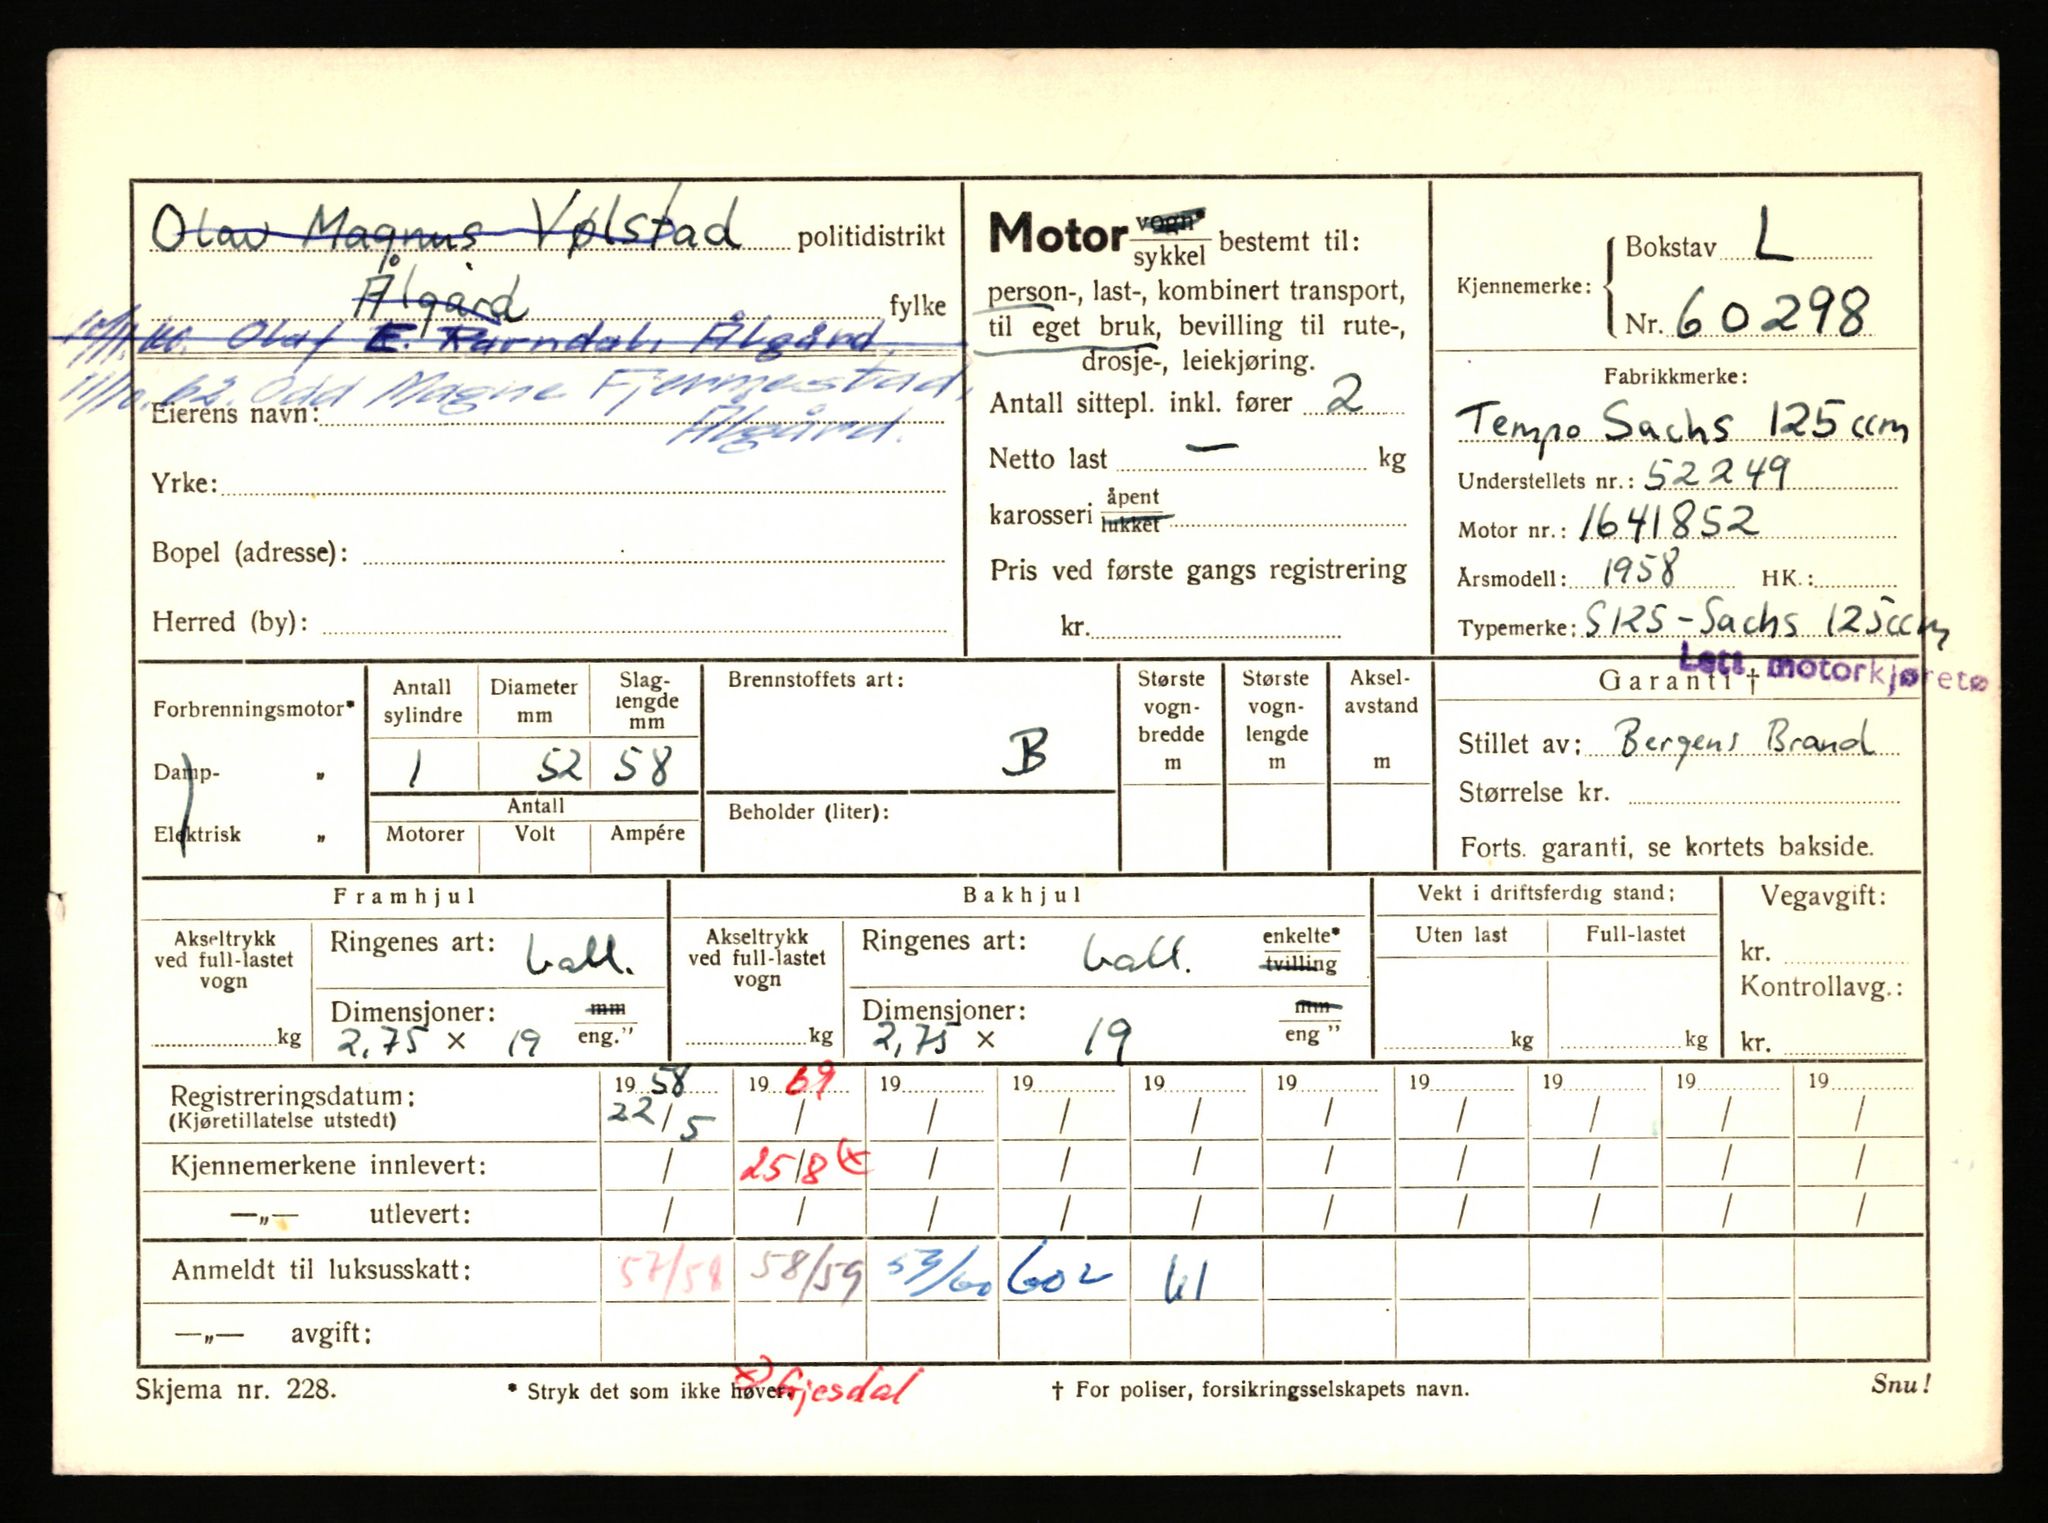 Olav Magnus Vølstad politidistrikt
Ålgård fylke
Olaf E. Ravndal, Ålgård.
11/10.62. Odd Magne Fjermestad,
Ålgård.
Eierens navn:
Yrke:
Bopel (adresse):
Herred (by):
Motor vogn* / sykkel bestemt til:
person-, last-, kombinert transport,
til eget bruk, bevilling til rute-,
drosje-, leiekjøring.
Antall sittepl. inkl. fører 2
Netto last — kg
karosseri åpent / lukket
Pris ved første gangs registrering
kr.
Kjennemerke:
Bokstav L
Nr. 60298
Fabrikkmerke:
Tempo Sachs 125 ccm
Understellets nr.: 52249
Motor nr.: 1641852
Årsmodell: 1958 HK.:
Typemerke: S125-Sachs 125ccm
Lett motorkjøretø
Garanti †
Stillet av: Bergens Brand
Størrelse kr.
Forts. garanti, se kortets bakside.
Forbrenningsmotor*
Damp- „
Elektrisk „
Antall sylindre
Diameter mm
Slaglengde mm
1 52 58
Antall
Motorer Volt Ampére
Brennstoffets art:
B
Beholder (liter):
Største vognbredde m
Største vognlengde m
Akselavstand m
Framhjul
Akseltrykk ved full-lastet vogn
kg
Ringenes art: ball.
Dimensjoner: mm / eng."
2,75 × 19
Bakhjul
Akseltrykk ved full-lastet vogn
kg
Ringenes art: ball. enkelte* / tvilling
Dimensjoner: mm / eng"
2,75 × 19
Vekt i driftsferdig stand:
Uten last Full-lastet
kg kg
Vegavgift:
kr.
Kontrollavg.:
kr.
Registreringsdatum: 19 58 19 69 19 19 19 19 19 19 19 19
(Kjøretillatelse utstedt) 22/5 / / / / / / / / /
Kjennemerkene innlevert: / 25/8 (x / / / / / / / /
—„— utlevert: / / / / / / / / / /
Anmeldt til luksusskatt: 57/58 58/59 59/60 602 61
—„— avgift:
Skjema nr. 228. * Stryk det som ikke høver. x) Gjesdal † For poliser, forsikringsselskapets navn. Snu!